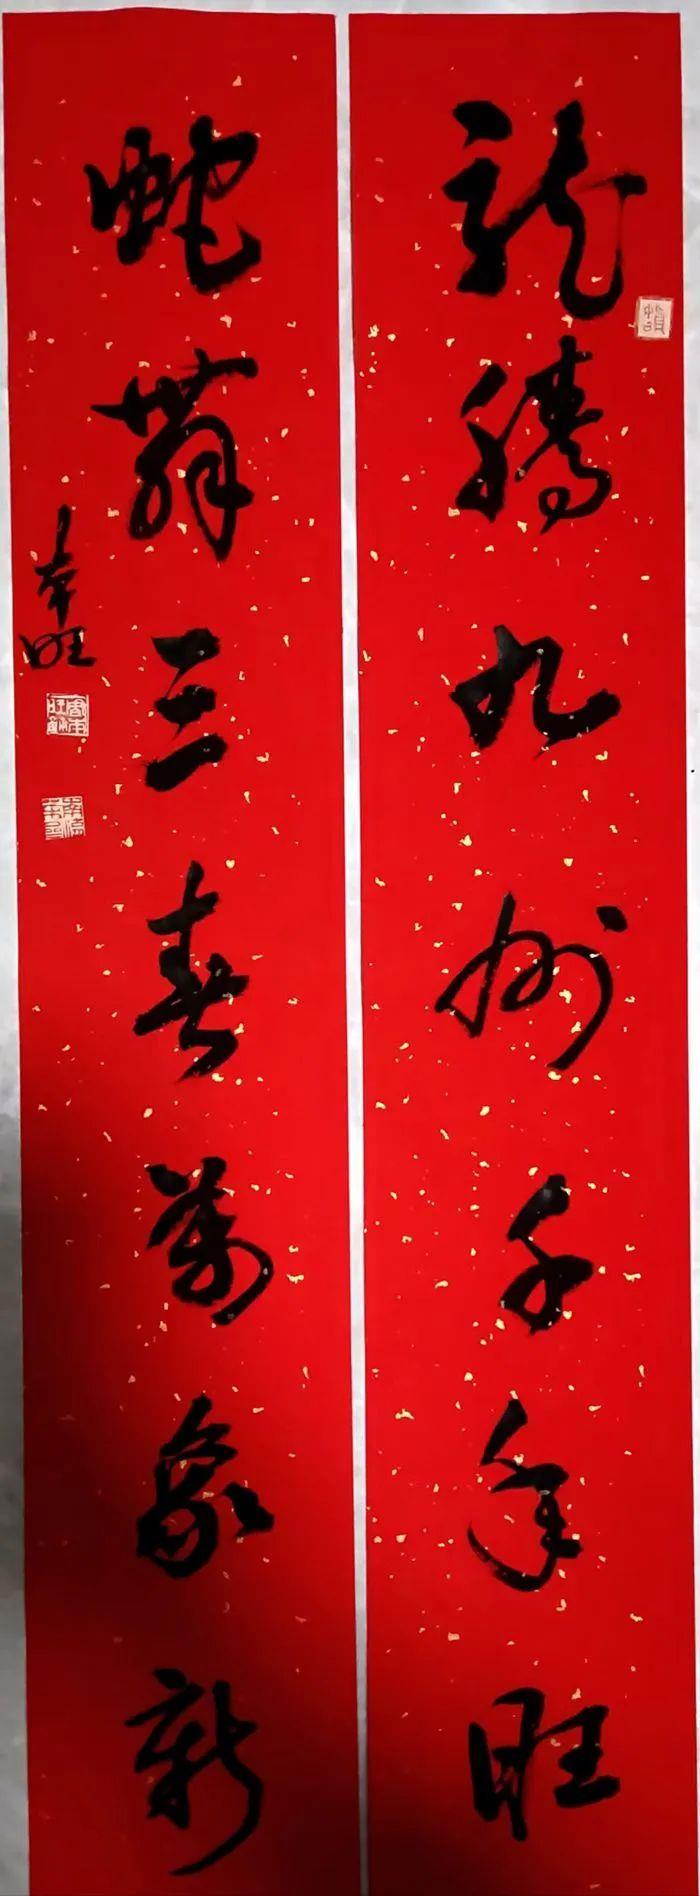 龍騰九州千年旺
蛇舞三春萬象新
本旺